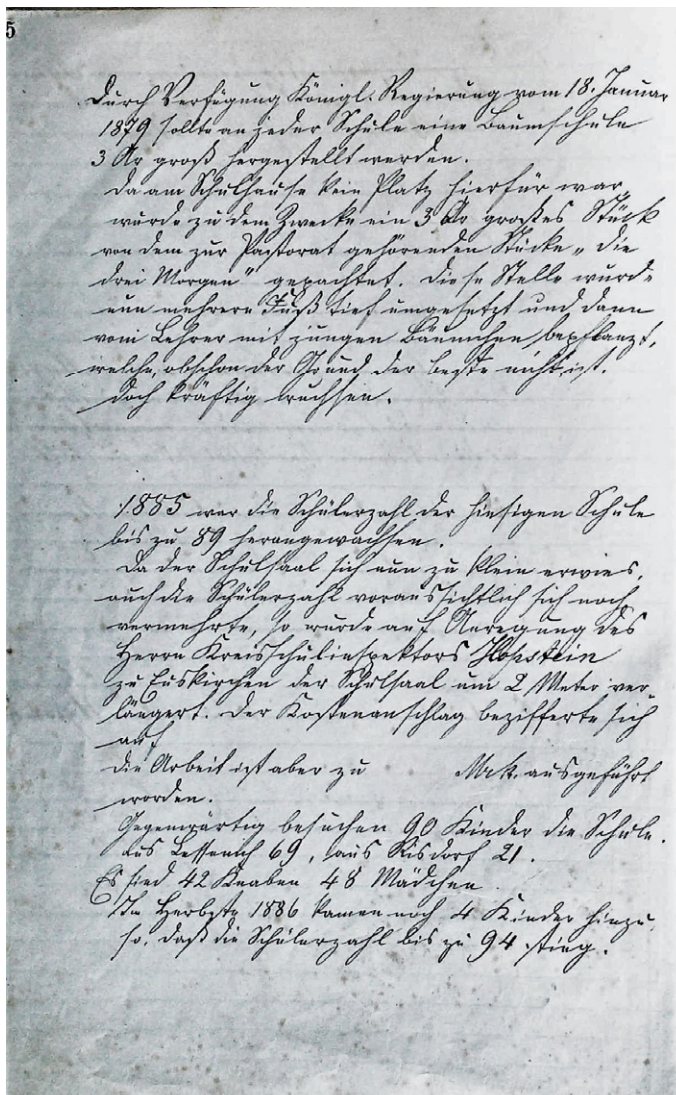 5
Durch Verfügung Königl. Regierung vom 18. Januar
1879 sollte an jeder Schule eine Baumschule
3 Ar groß hergestellt werden.
Da am Schulhause kein Platz hierfür war,
wurde zu dem Zwecke ein 3 Ar großes Stück
von dem zur Pastorat gehörenden Stücke „die
drei Morgen" gepachtet. Diese Stelle wurde
nun mehrere Fuß tief umgesetzt und dann
vom Lehrer mit jungen Bäumchen bepflanzt,
welche, obschon der Grund der beste nicht ist.
doch kräftig wuchsen.
1885 war die Schülerzahl der hiesigen Schule
bis zu 89 herangewachsen.
Da der Schulsaal sich nun zu klein erwies,
auch die Schülerzahl voraussichtlich sich noch
vermehrte, so wurde auf Anregung des
Herrn Kreisschulinspektors Hopstein
zu Euskirchen der Schulsaal um 2 Meter ver-
längert. Der Kostenanschlag bezifferte sich
auf
die Arbeit ist aber zu Mrk. ausgeführt
worden.
Gegenwärtig besuchen 90 Kinder die Schule.
aus Lessenich 69, aus Risdorf 21.
Es sind 42 Knaben 48 Mädchen.
Im Herbste 1886 kamen noch 4 Kinder hinzu,
so, daß die Schülerzahl bis zu 94 stieg.